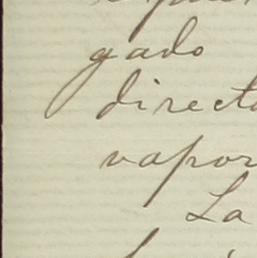 gado
direct
vapor
La